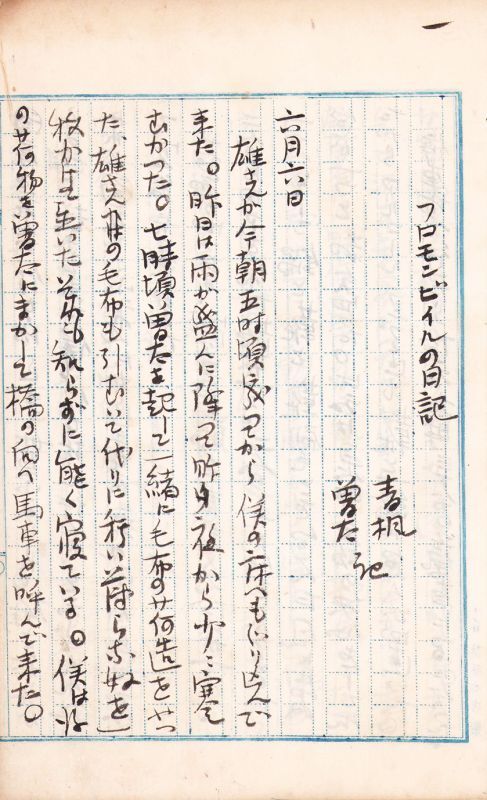 フロモンビイルの日記
青楓
曽太 記
六月六日
雄さんが今朝五時頃家つから僕の床へもぐり込んで
来た。昨日は雨が盛んに降つて昨夜から少々寒
むかつた。七時頃曽太を起して一緒に毛布の荷造をやつ
た、雄さんの毛布も引むいて代りに穢い
枚かを置いた 知らずに能く寝ている。僕は
の荷物を曽太にまかして橋の向へ馬車を呼んで来た。